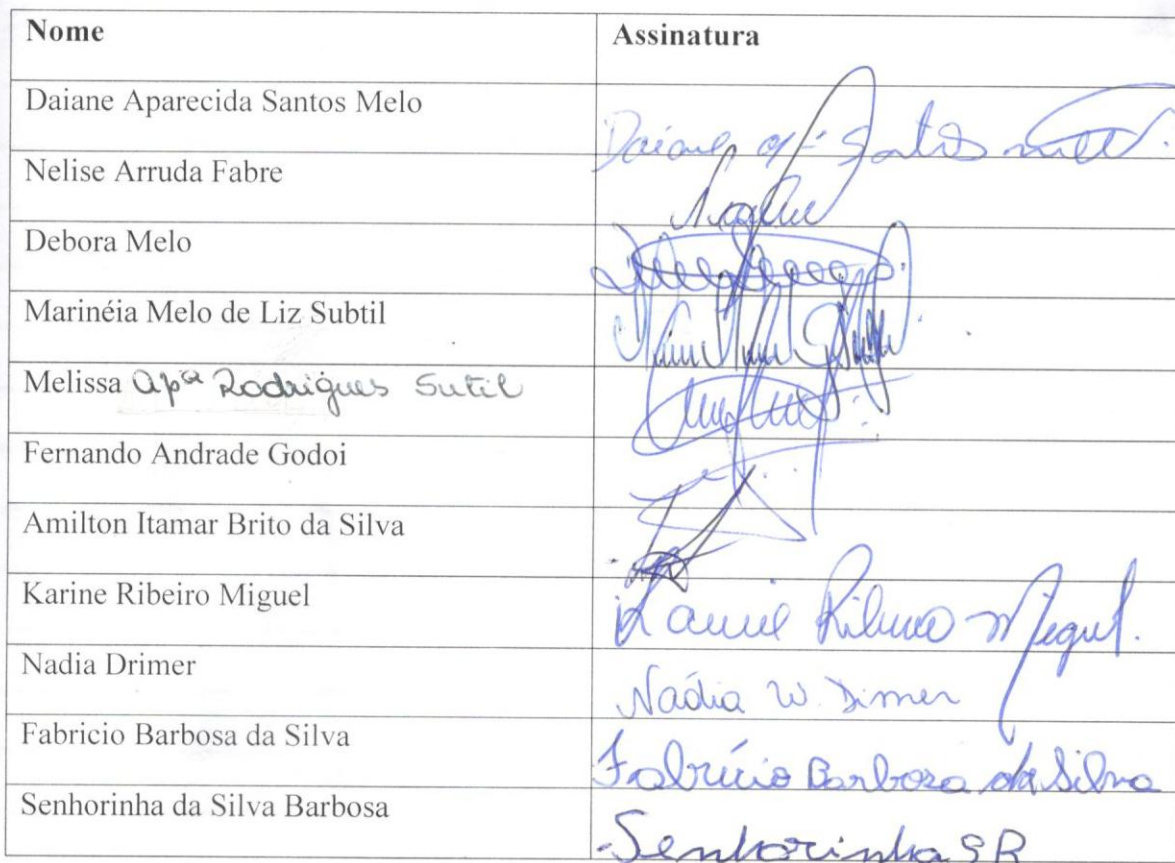 Nome Assinatura
Daiane Aparecida Santos Melo Daiane Santos
Nelise Arruda Fabre
Debora Melo
Marinéia Melo de Liz Subtil
Melissa Apª Rodrigues Sutil
Fernando Andrade Godoi
Amilton Itamar Brito da Silva
Karine Ribeiro Miguel Karine Ribeiro Miguel.
Nadia Drimer Nádia W. Dimer
Fabricio Barbosa da Silva Fabrício Barboza da Silva
Senhorinha da Silva Barbosa Senhorinha SB